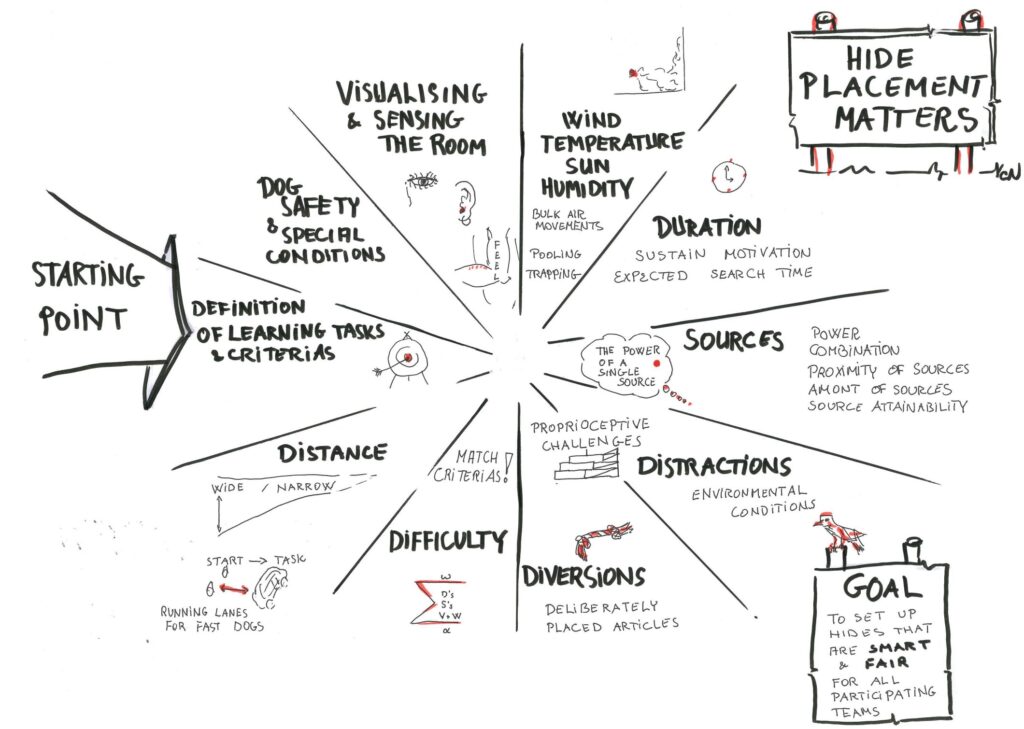 HIDE
PLACEMENT
MATTERS
STARTING
POINT
DEFINITION
OF LEARNING TASKS
& CRITERIAS
DOG
SAFETY
& SPECIAL
CONDITIONS
VISUALISING
& SENSING
THE ROOM
FEEL
WIND
TEMPERATURE
SUN
HUMIDITY
BULK AIR
MOVEMENTS
POOLING
TRAPPING
DURATION
SUSTAIN MOTIVATION
EXPECTED SEARCH TIME
SOURCES
POWER
COMBINATION
PROXIMITY OF SOURCES
AMONT OF SOURCES
SOURCE ATTAINABILITY
THE POWER
OF A
SINGLE
SOURCE
DISTRACTIONS
ENVIRONMENTAL
CONDITIONS
PROPRIOCEPTIVE
CHALLENGES
DIVERSIONS
DELIBERATELY
PLACED ARTICLES
DIFFICULTY
MATCH
CRITERIAS!
ω
D's
S's
V+W
α
DISTANCE
WIDE / NARROW
START → TASK
RUNNING LANES
FOR FAST DOGS
GOAL
TO SET UP
HIDES THAT
ARE SMART
& FAIR
FOR ALL
PARTICIPATING
TEAMS